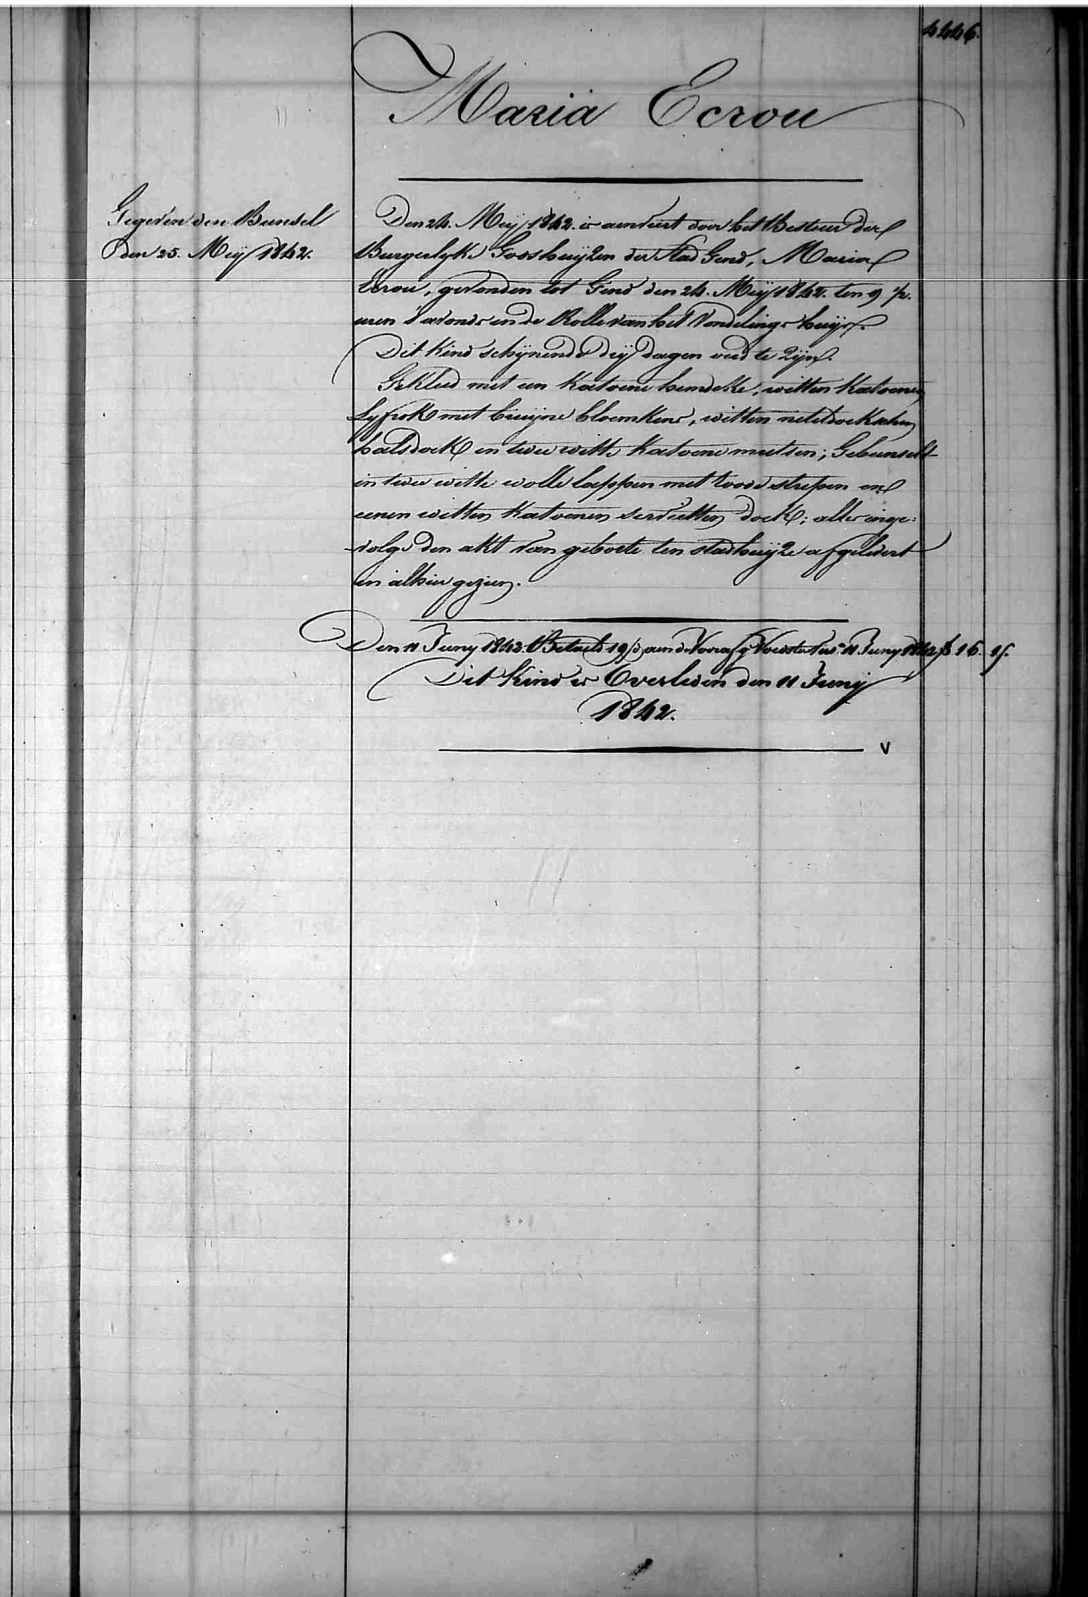 4446.
Maria Ecrou
Gegeven den Bunsel
den 25. Meij 1842.
Den 24. Meij 1842. is aenveirt door het Bestuur der
Burgerlyke Godshuijzen der Stad Gend, Maria
Ecrou, gevonden tot Gend den 24. Meij 1842. ten 9 1/2.
uren 's avonds in de Rolle van het Vondelings huijs.
Dit kind schijnende drij dagen oud te zijn.
Gekleed met een katoene hemdeke, witten katoenen
lyfrok met bruijne bloemkens, witten netteldoekschen
halsdoek en twee witte katoene mutsen; Gebunselt
in twee witte wolle lappen met roode strepen en
eenen witten katoenen servietten doek; alles inge-
volge den akt van geboorte ten stadhuijze afgeleverd
en alhier gezien.
Den 11 Juny 1842. Betaeld 19/d aen de Voedster 11 Juny 1842 16.
Dit kind is Overleden den 11 Junij
1842.
V